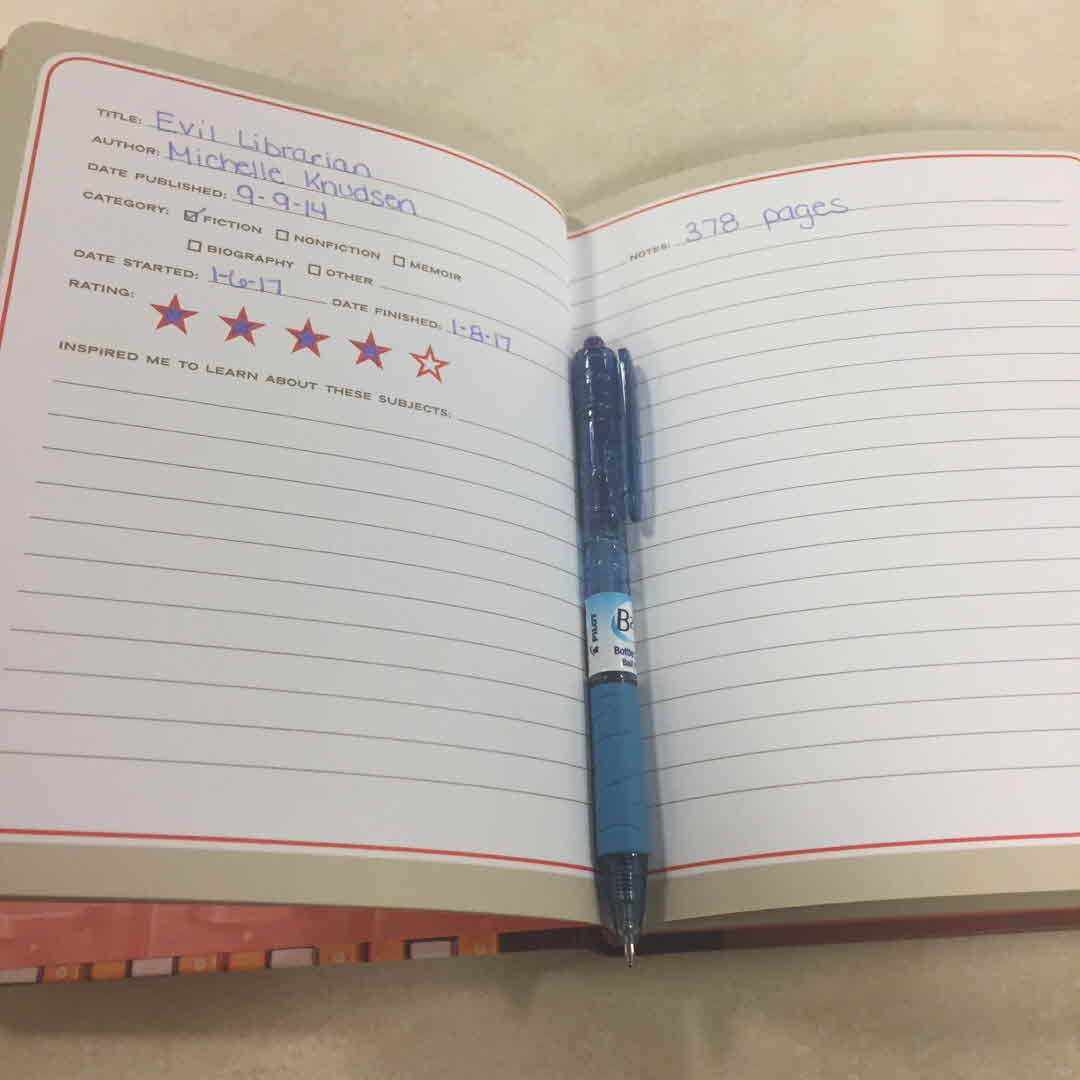 TITLE: Evil Librarian
AUTHOR: Michelle Knudsen
DATE PUBLISHED: 9-9-14
CATEGORY: FICTION NONFICTION MEMOIR
BIOGRAPHY OTHER
DATE STARTED: 1-6-17 DATE FINISHED: 1-8-17
RATING:
INSPIRED ME TO LEARN ABOUT THESE SUBJECTS:
NOTES: 378 pages
PILOT